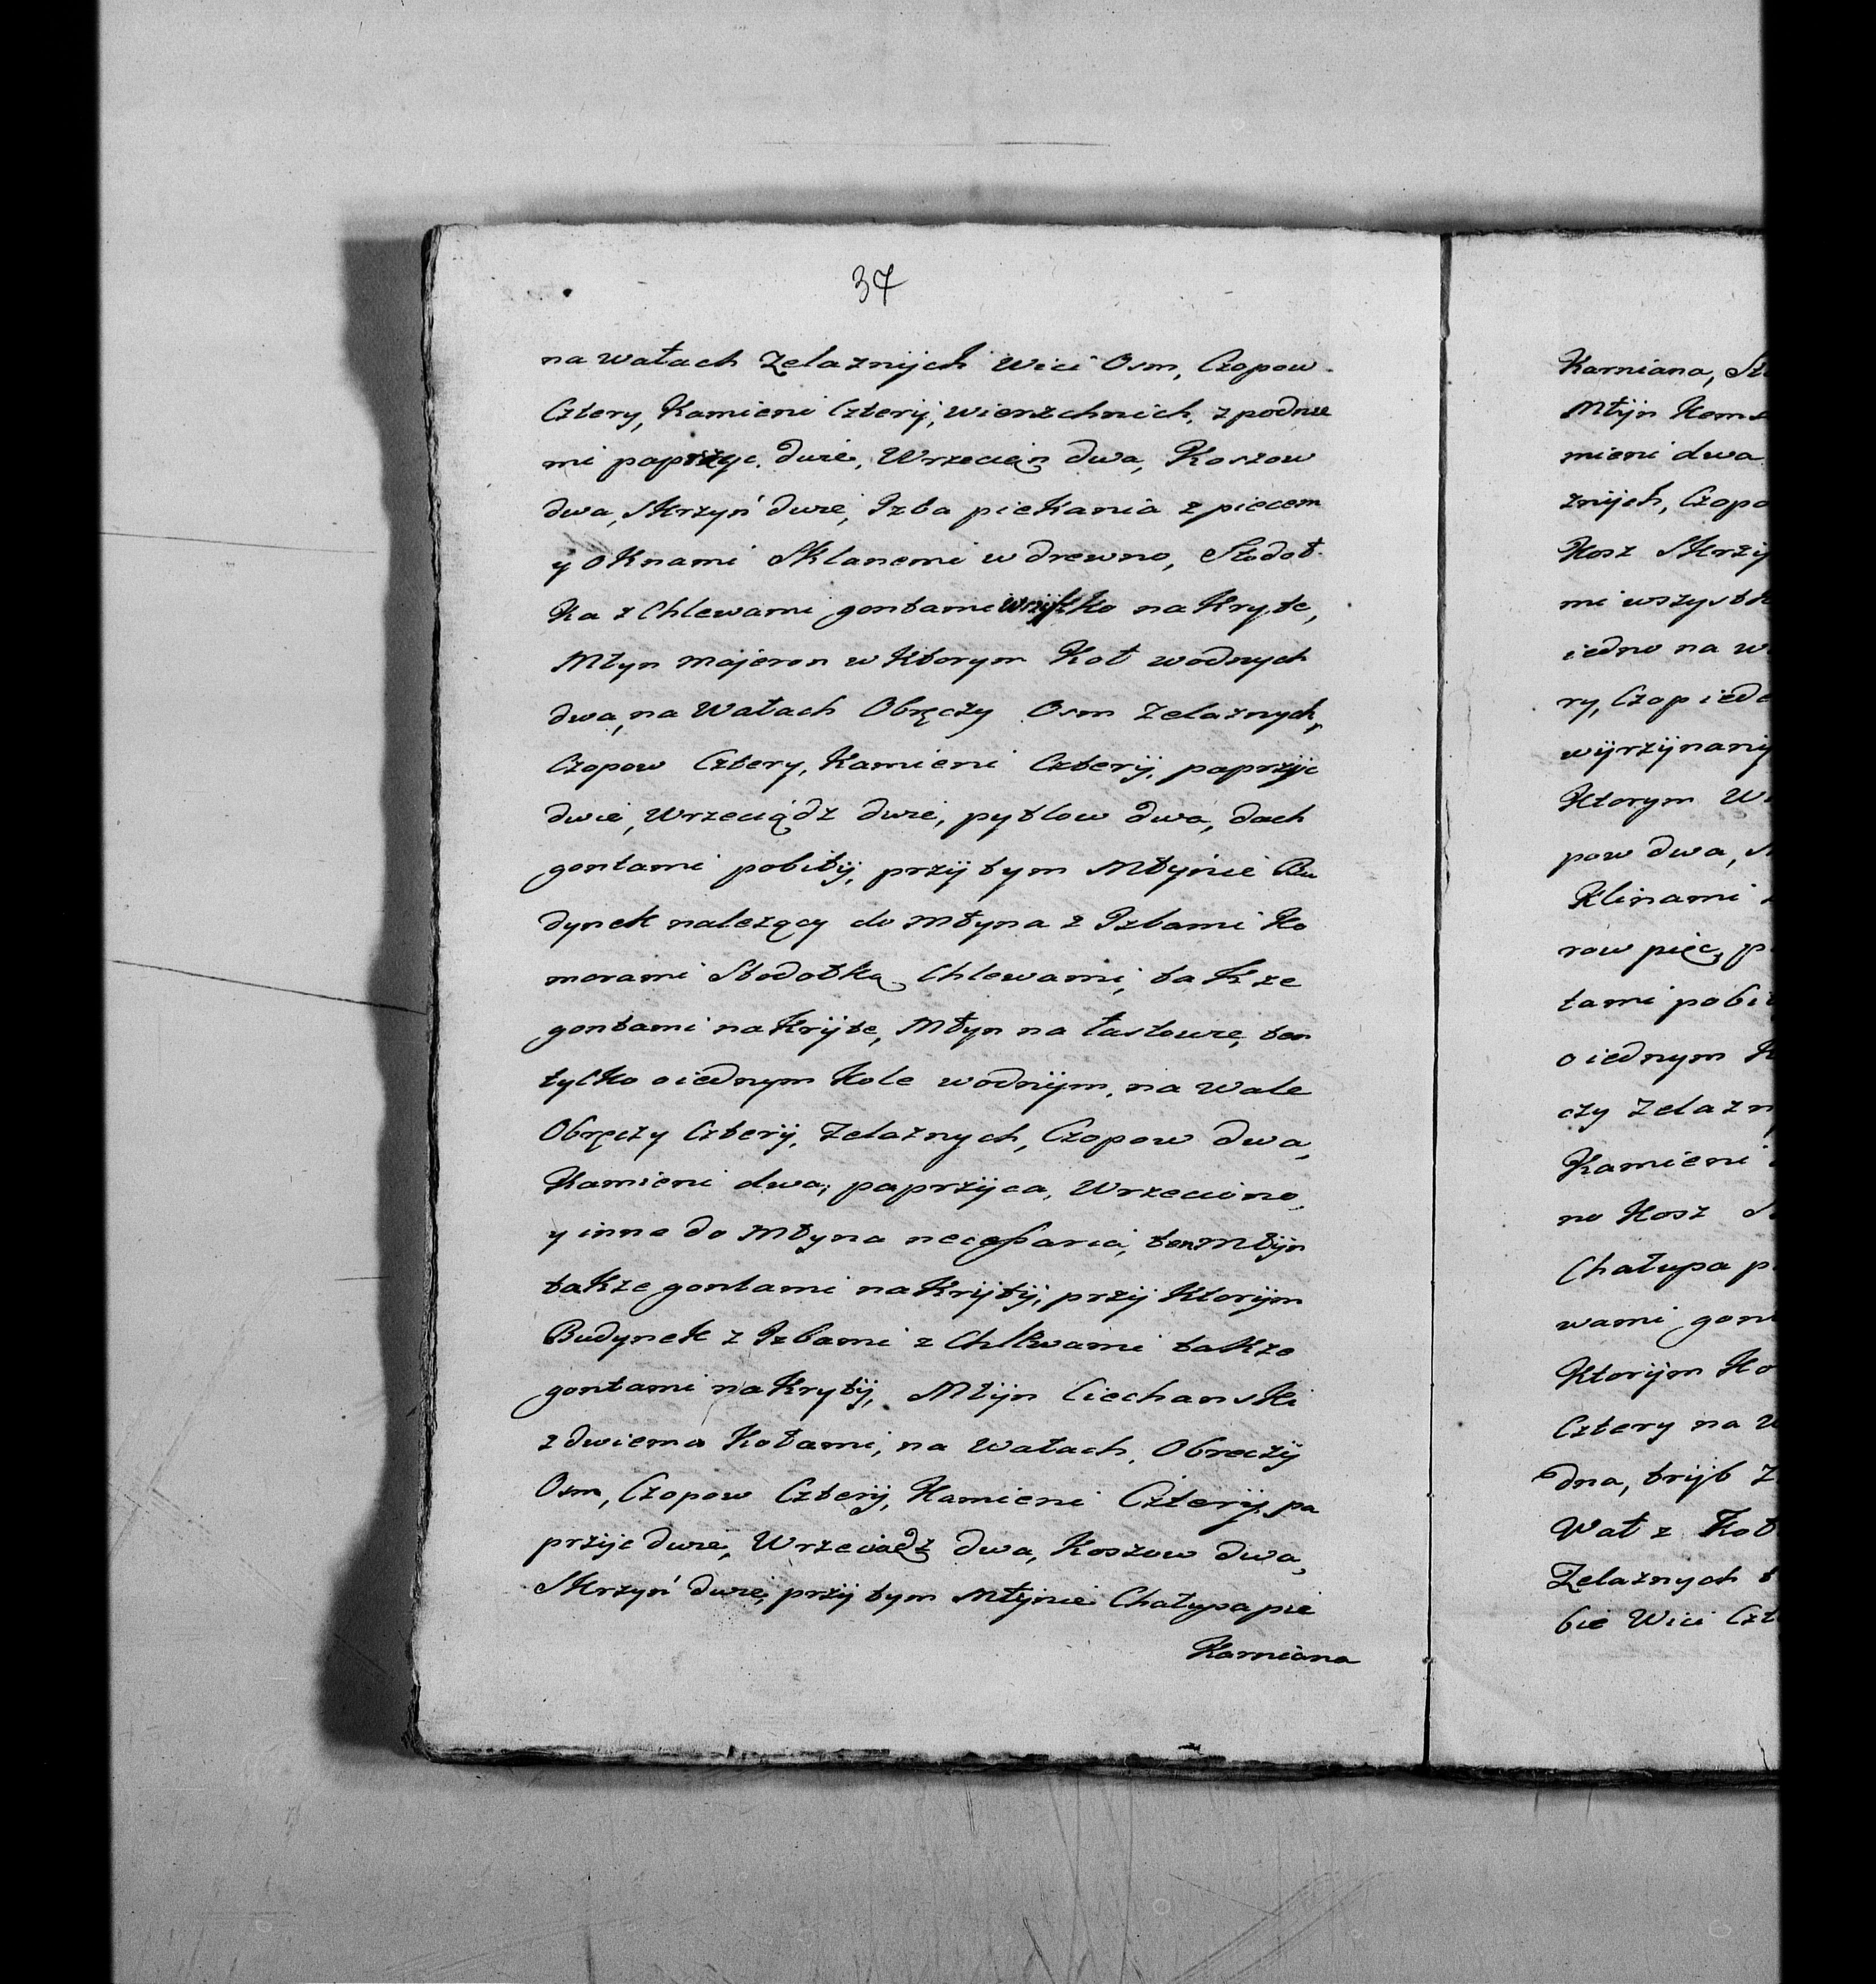 37
na wałach Zelaznijch Wici Osm, Czopow
Cztery, Kamieni Czterij, wierzchnich, z podnie
mi paprzyc dwie, Wrzecian dwa, Koszow
dwa, Skrzyń dwie, Izba piekania z piecem
y oknami Sklanemi w drewno, Stodoł
ka z Chlewami gontami wszystko na Kryte,
Młyn majeron w Ktorym Koł wodnych
dwa, na Wałach Obręczy Osm Zelaznych,
Czopow Cztery, Kamieni Czterij, paprzijc
dwie, Wrzeciądz dwie, pytlow dwa, dach
gontami pobitÿ, przÿ tym Młÿnie Bu
dynek nalezący do młyna z Izbami Ko
morami Stodołką Chlewami, takze
gontami na Krijte, Młyn na łastowie, ten
tylko o iednym Kole wodnijm, na Wale
Obręczy Czterij, Zelaznych, Czopow dwa,
Kamieni dwa, paprzijca, Wrzeciono,
y inne do Młyna necessaria, ten Młijn
takze gontami na Krijtij, przij Ktorijm
Budynek z Izbami z Chlewami takze
gontami na Krytij, Młijn Ciechanski
z dwiema Kołami, na Wałach, Obreczij
Osm, Czopow Czterij, Kamieni Czterij, pa
przijc dwie, Wrzeciądz dwa, Koszow dwa,
Skrzyń dwie, przij tym młijnie Chałupa pie
Karniana
Karniana,
Młijn
mieni dwa
znijch,
Kosz
mi
iedno na
ry, Czop
wijrzijnanij
Ktorym
pow dwa,
Klinami
row pięc,
tami
o iednym
czy
Kamieni
no Kosz
Chałupa
wami
Ktorijm
Cztery na
dna, trijb
Wał z
Zelaznych
bie Wici